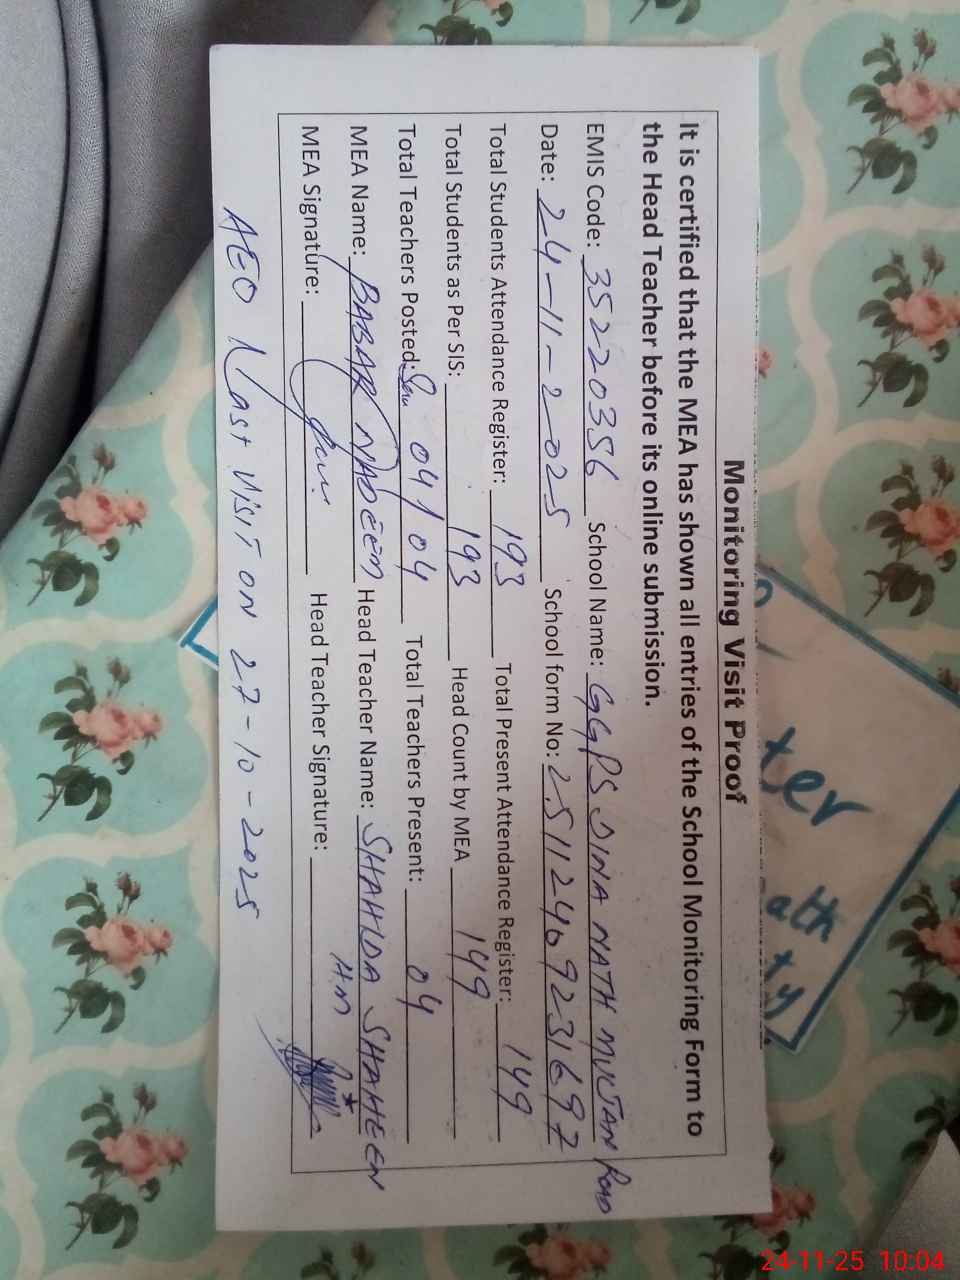 Monitoring Visit Proof
It is certified that the MEA has shown all entries of the School Monitoring Form to
the Head Teacher before its online submission.
EMIS Code: 35220356 School Name: GGPS DINA NATH MULTAN ROAD
Date: 24-11-2025 School form No: 25112409231697
Total Students Attendance Register: 193 Total Present Attendance Register: 149
Total Students as Per SIS: 193 Head Count by MEA 149
Total Teachers Posted: 04/04 Total Teachers Present: 04
MEA Name: BABAR NADEEM Head Teacher Name: SHAHIDA SHAHEEN
HM
MEA Signature: Head Teacher Signature:
AEO Last Visit ON 27-10-2025
ter
ath
ty
24-11-25 10:04